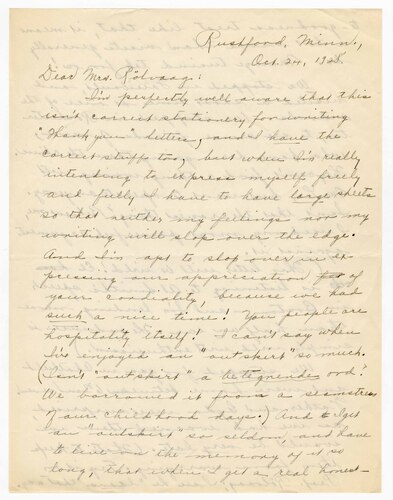 Rushford, Minn.,
Oct. 24, 1928.
Dear Mrs. Rölvaag:
I'm perfectly well aware that this
isn't correct stationery for writing
"Thank you" letters, and I have the
correct stuff too, but when I'm really
intending to express myself freely
and fully I have to have large sheets
so that neither my feelings nor my
writing will slop over the edge.
And I'm apt to slop over in ex-
pressing our appreciation for of
your cordiality, because we had
such a nice time! You people are
hospitality itself! I can't say when
I've enjoyed an "outskirt" so much.
(Isn't "outskirt" a betegnende ord?
We borrowed it from a seamstress
of our childhood days.) And I get
an "outskirt" so seldom, and have
to live on the memory of it so
long, that when I get a real honest-